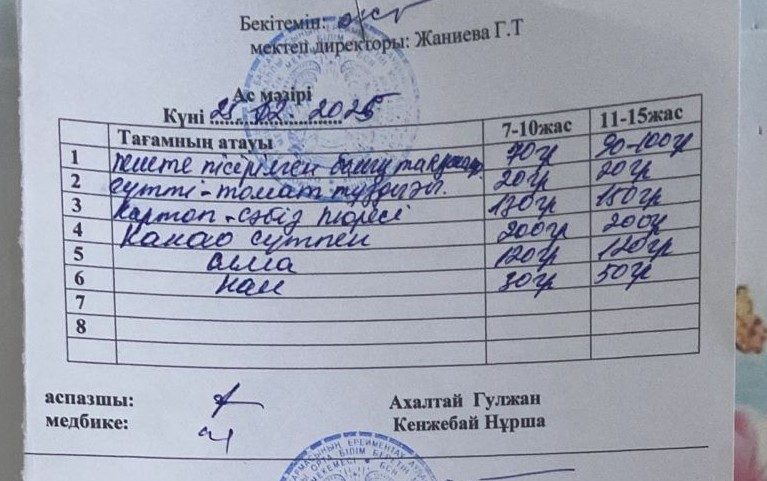 Бекітемін:
мектеп директоры: Жаниева Г.Т
Ас мәзірі
Күні 25.02.2025
Тағамның атауы 7-10жас 11-15жас
1 пеште пісірілген балық 70гр 90-100гр
2 сүтті-томат тұздығы. 20гр 20гр
3 картоп-сәбіз пюресі 130гр 150гр
4 Какао сүтпен 200гр 200гр
5 алма 120гр 120гр
6 нан 30гр 50гр
7
8
аспазшы: Ахалтай Гулжан
медбике: Кенжебай Нұрша